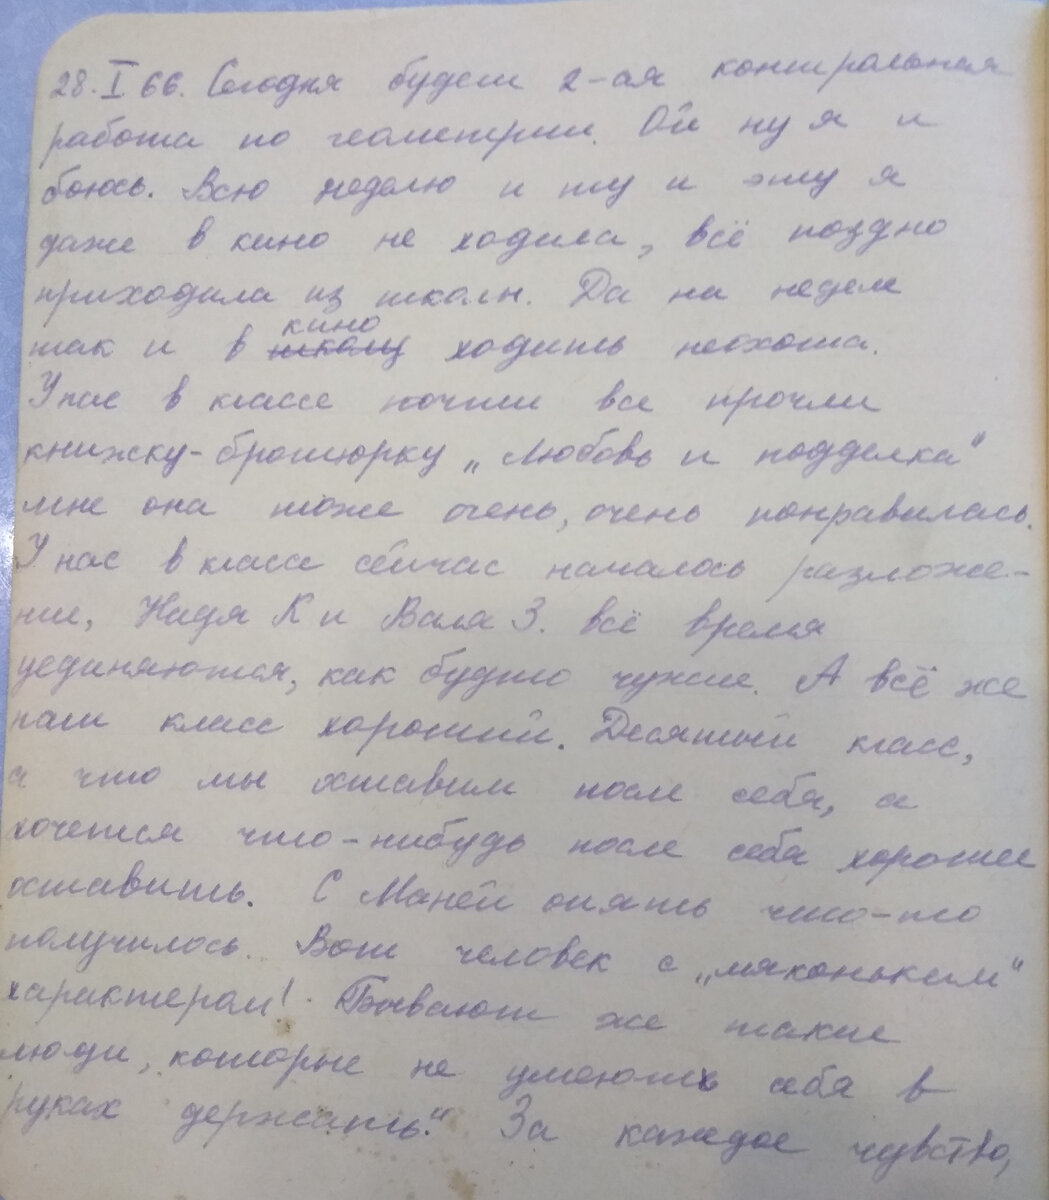 28.I 66. Сегодня будет 2-ая контрольная
работа по геометрии. Ой ну я и
боюсь. Всю неделю и ту и эту я
даже в кино не ходила, всё поздно
приходила из школы. Да на неделе
так и в школу кино ходить неохота.
У нас в классе почти все прочли
книжку-брошюрку „Любовь и подделка"
мне она тоже очень, очень понравилась.
У нас в классе сейчас началось разложе-
ние, Надя К и Валя З. всё время
уединяются, как будто чужие. А всё же
наш класс хороший. Десятый класс,
а что мы оставим после себя, а
хочется что-нибудь после себя хорошее
оставить. С Маней опять что-то
получилось. Вот человек с „мяконьким"
характером! Бывают же такие
люди, которые не умеють себя в
руках держать." За каждое чувство,